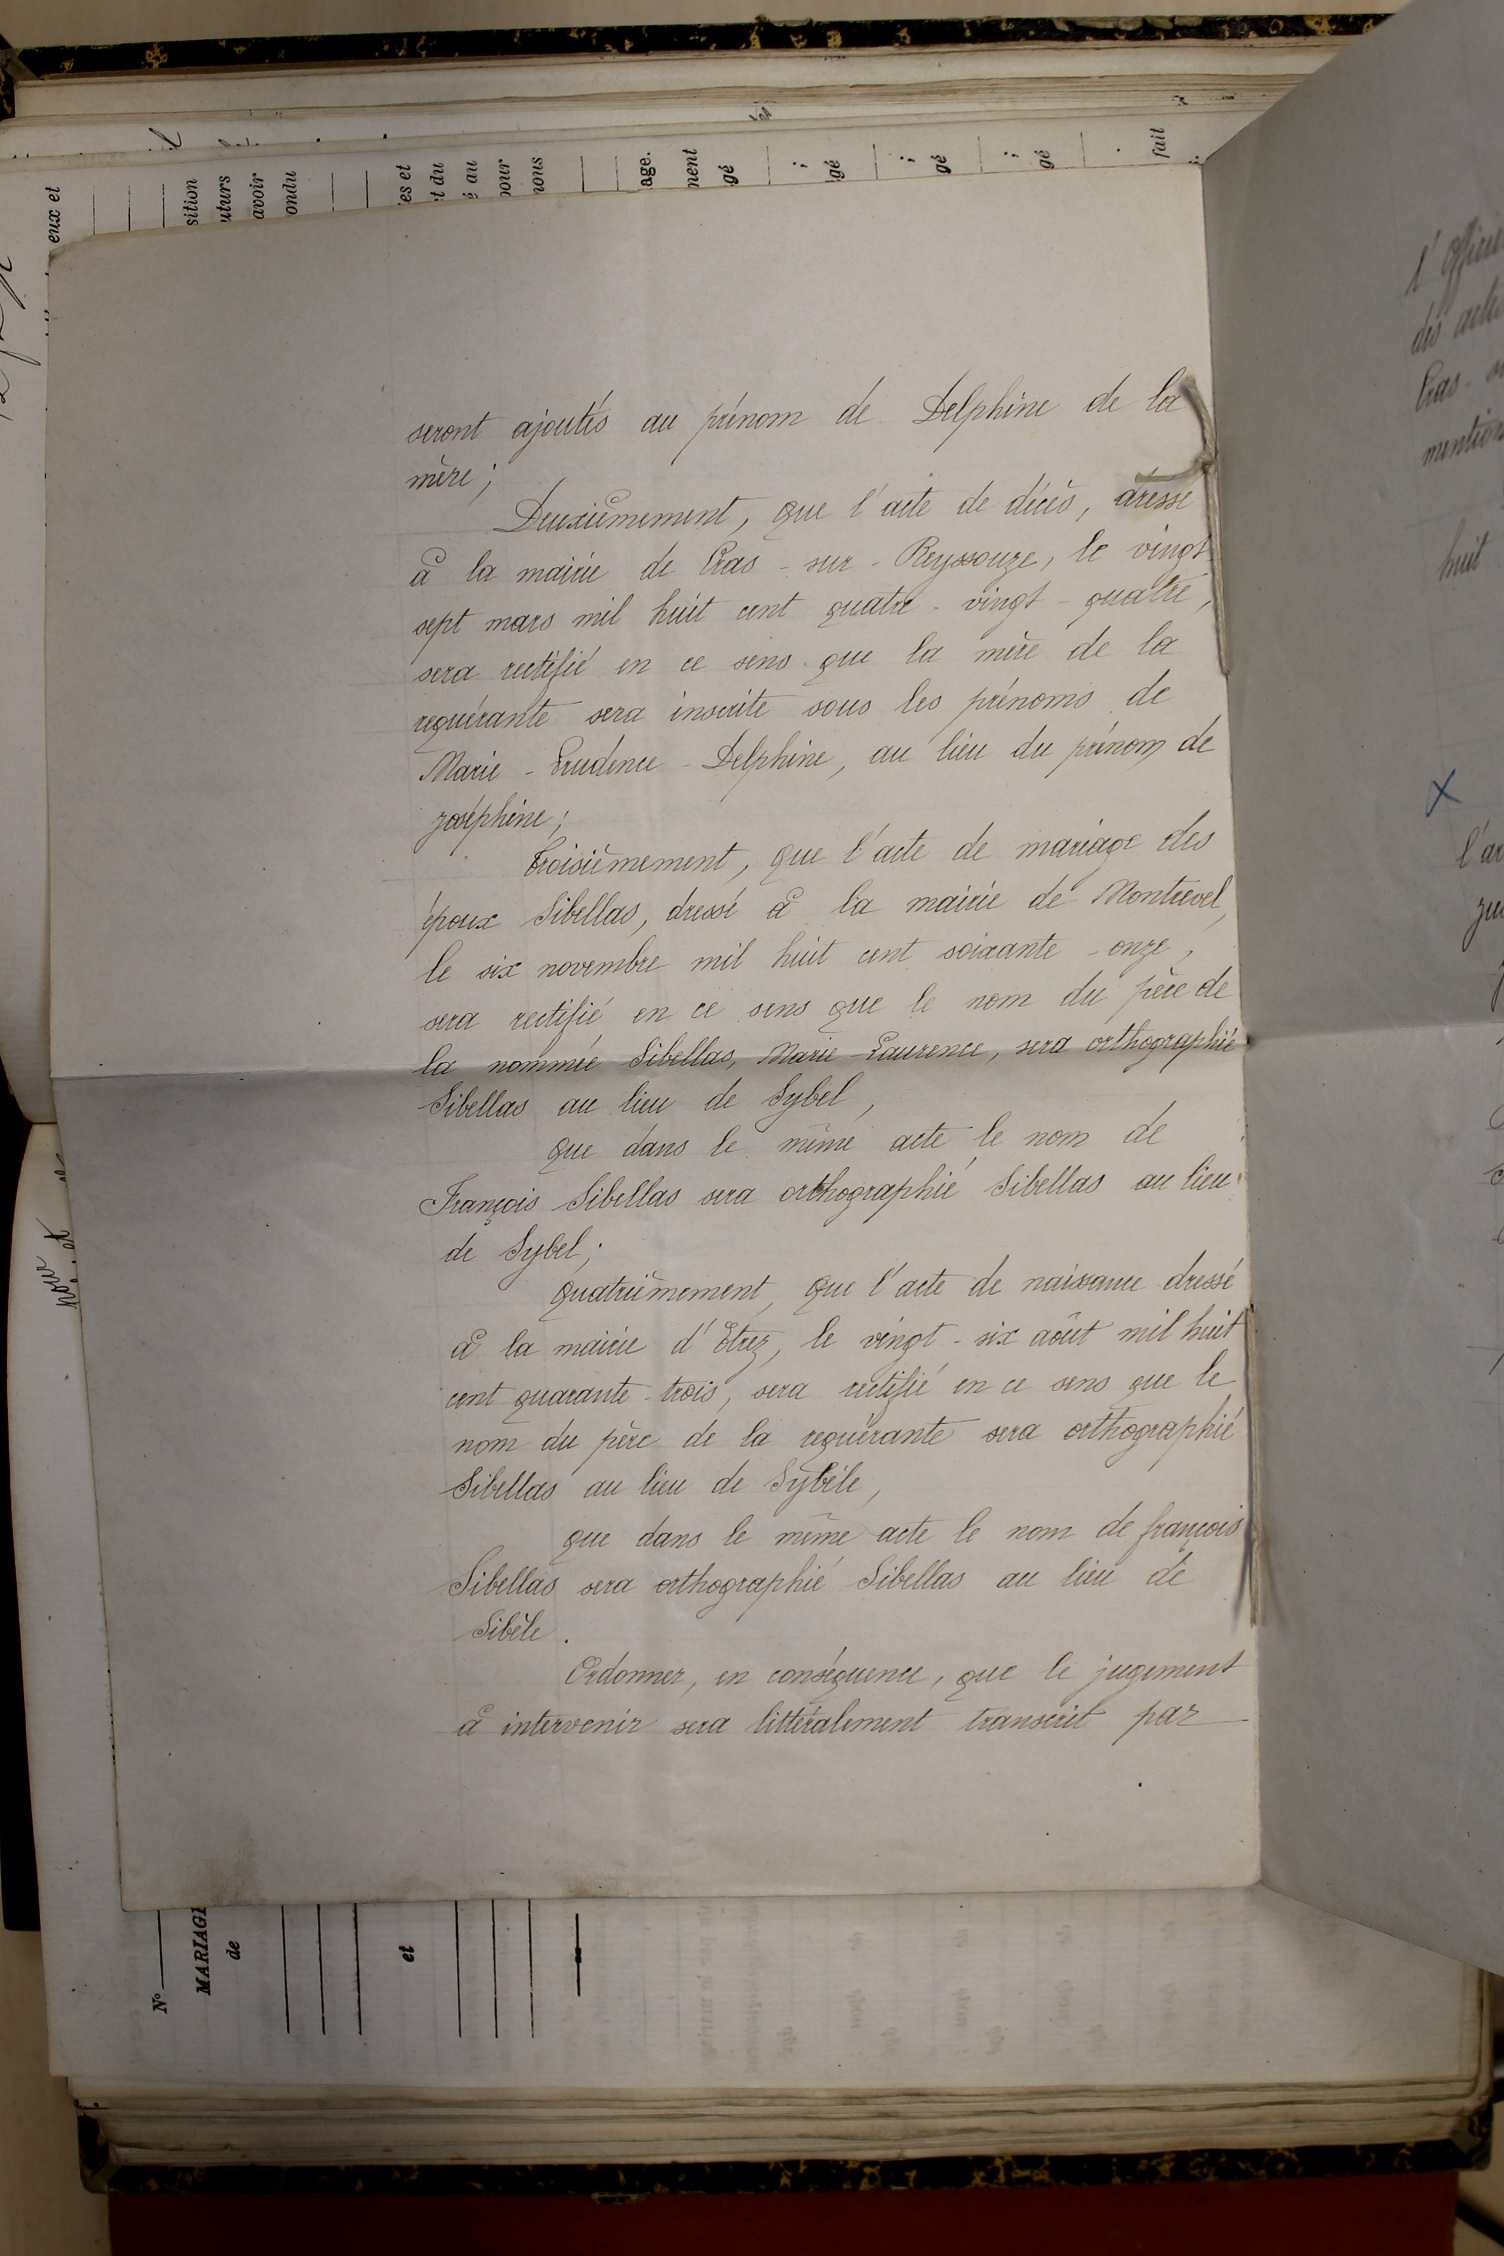 seront ajoutés au prénom de Delphine de la
mère;
Deuxièmement, que l'acte de décès, dressé
à la mairie de Cras-sur-Reyssouze, le vingt
sept mars mil huit cent quatre-vingt-quatre,
sera rectifié en ce sens que la mère de la
requérante sera inscrite sous les prénoms de
Marie-Prudence-Delphine, au lieu du prénom de
Joséphine;
Troisièmement, que l'acte de mariage des
époux Sibellas, dressé à la mairie de Montrevel,
le six novembre mil huit cent soixante-onze,
sera rectifié en ce sens que le nom du père de
la nommée Sibellas, Marie-Laurence, sera orthographié
Sibellas au lieu de Sybel,
que dans le même acte le nom de
François Sibellas sera orthographié Sibellas au lieu
de Sybel;
Quatrièmement, que l'acte de naissance dressé
à la mairie d'Etrez, le vingt-six août mil huit
cent quarante-trois, sera rectifié en ce sens que le
nom du père de la requérante sera orthographié
Sibellas au lieu de Sybèle,
que dans le même acte le nom de françois
Sibellas sera orthographié Sibellas au lieu de
Sibèle.
Ordonner, en conséquence, que le jugement
à intervenir sera littéralement transcrit par
eux et
sition
uturs
avoir
ondu
es et
t du
é au
pour
nous
age.
nent
gé
gé
gé
gé
fait
N°
MARIAGE
de
et
l'Officie
des actes
Cras-
mention
huit